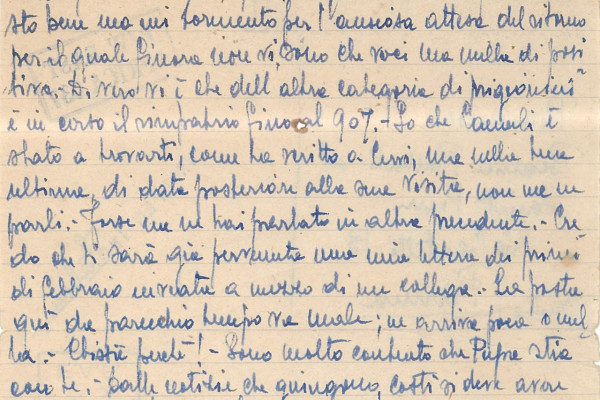 sto bene ma mi tormento per l'ansiosa attesa del ritorno
per il quale finora non vi sono che voci ma nulla di posi
tivo. Di vero vi è che dell'altra categoria di prigionieri
è in corso il rimpatrio fino al 90%.- So che è
stato a trovarti, come ha scritto a, ma nella tua
ultima, di data posteriore alla sua visita, non me ne
parli.- Forse me ne hai parlato in altra precedente.- Cre
do che ti sarà già pervenuta una mia lettera dei primi
di febbraio inviata a mezzo di un collega.- La posta
qui da parecchio tempo va male; ne arriva poca o nul
la.- Chissà perché!- Sono molto contento che Pupa stia
con te.- Dalle notizie, che giungono, costì si deve aver